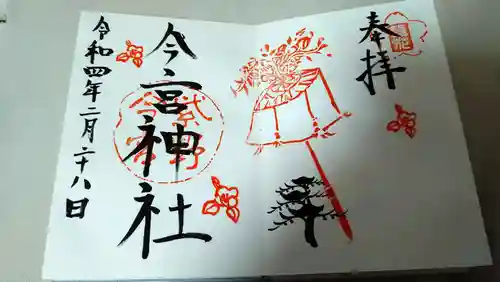 奉拝
今宮神社
令和四年二月二十八日